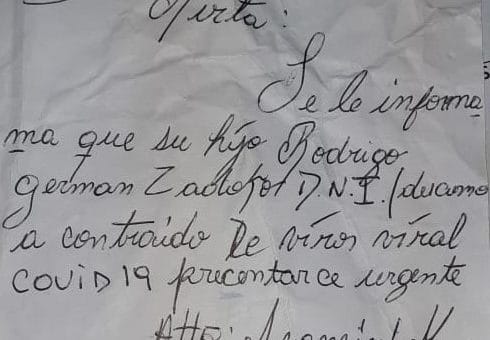 Mirta:
Se le informa
ma que su hijo Rodrigo
german D.N.I.
a contraido De viros viral
COVID 19 precentarce urgente
Atto: